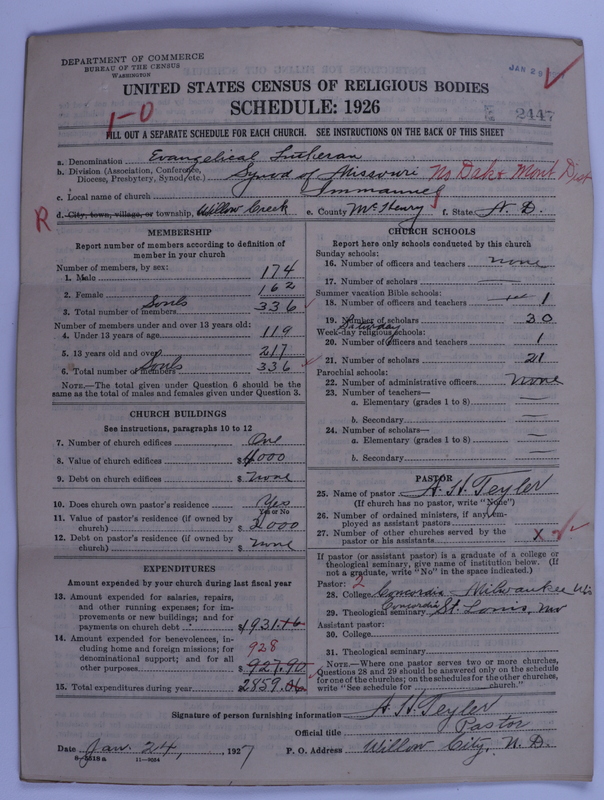 DEPARTMENT OF COMMERCE
BUREAU OF THE CENSUS
WASHINGTON
JAN 29
UNITED STATES CENSUS OF RELIGIOUS BODIES
SCHEDULE: 1926
1-0
2447
FILL OUT A SEPARATE SCHEDULE FOR EACH CHURCH. SEE INSTRUCTIONS ON THE BACK OF THIS SHEET
a. Denomination Evangelical Lutheran
b. Division (Association, Conference, Diocese, Presbytery, Synod, etc.) Synod of Missouri No Dak & Mont Dist
c. Local name of church Immanuel
R d. City, town, village, or township, Willow Creek e. County McHenry f. State N. D.
MEMBERSHIP
Report number of members according to definition of
member in your church
Number of members, by sex:
1. Male 174
2. Female 162
3. Total number of members Souls 336
Number of members under and over 13 years old:
4. Under 13 years of age 119
5. 13 years old and over 217
6. Total number of members Souls 336
NOTE.—The total given under Question 6 should be
same as the total of males and females given under Question 3.
CHURCH BUILDINGS
See instructions, paragraphs 10 to 12
7. Number of church edifices One
8. Value of church edifices $4000
9. Debt on church edifices $ none
10. Does church own pastor's residence Yes
Yes or No
11. Value of pastor's residence (if owned by
church) $2000
12. Debt on pastor's residence (if owned by
church) $ none
EXPENDITURES
Amount expended by your church during last fiscal year
13. Amount expended for salaries, repairs,
and other running expenses; for im-
provements or new buildings; and for
payments on church debt $1931.16
14. Amount expended for benevolences, in-
cluding home and foreign missions; for 928
denominational support; and for all
other purposes $927.90
15. Total expenditures during year $2859.06
CHURCH SCHOOLS
Report here only schools conducted by this church
Sunday schools:
16. Number of officers and teachers none
17. Number of scholars —
Summer vacation Bible schools:
18. Number of officers and teachers 1
19. Number of scholars 30
Saturday
Week-day religious schools:
20. Number of officers and teachers 1
21. Number of scholars 21
Parochial schools:
22. Number of administrative officers none
23. Number of teachers—
a. Elementary (grades 1 to 8) —
b. Secondary —
24. Number of scholars—
a. Elementary (grades 1 to 8) —
b. Secondary —
PASTOR
25. Name of pastor A. H. Teyler
(If church has no pastor, write "None")
26. Number of ordained ministers, if any, em-
ployed as assistant pastors
27. Number of other churches served by the
pastor or his assistants X 2
If pastor (or assistant pastor) is a graduate of a college or
theological seminary, give name of institution below. (If
not a graduate, write "No" in the space indicated.)
Pastor: 2
28. College Concordia - Milwaukee Wis
29. Theological seminary Concordia St. Louis, Mo
Assistant pastor:
30. College
31. Theological seminary
NOTE.—Where one pastor serves two or more churches,
Questions 28 and 29 should be answered only on the schedule
for one of the churches; on the schedules for the other churches,
write "See schedule for church."
Signature of person furnishing information A. H. Teyler
Official title Pastor
Date Jan. 24, 1927 P. O. Address Willow City, N. D.
8-5518 a 11—9064